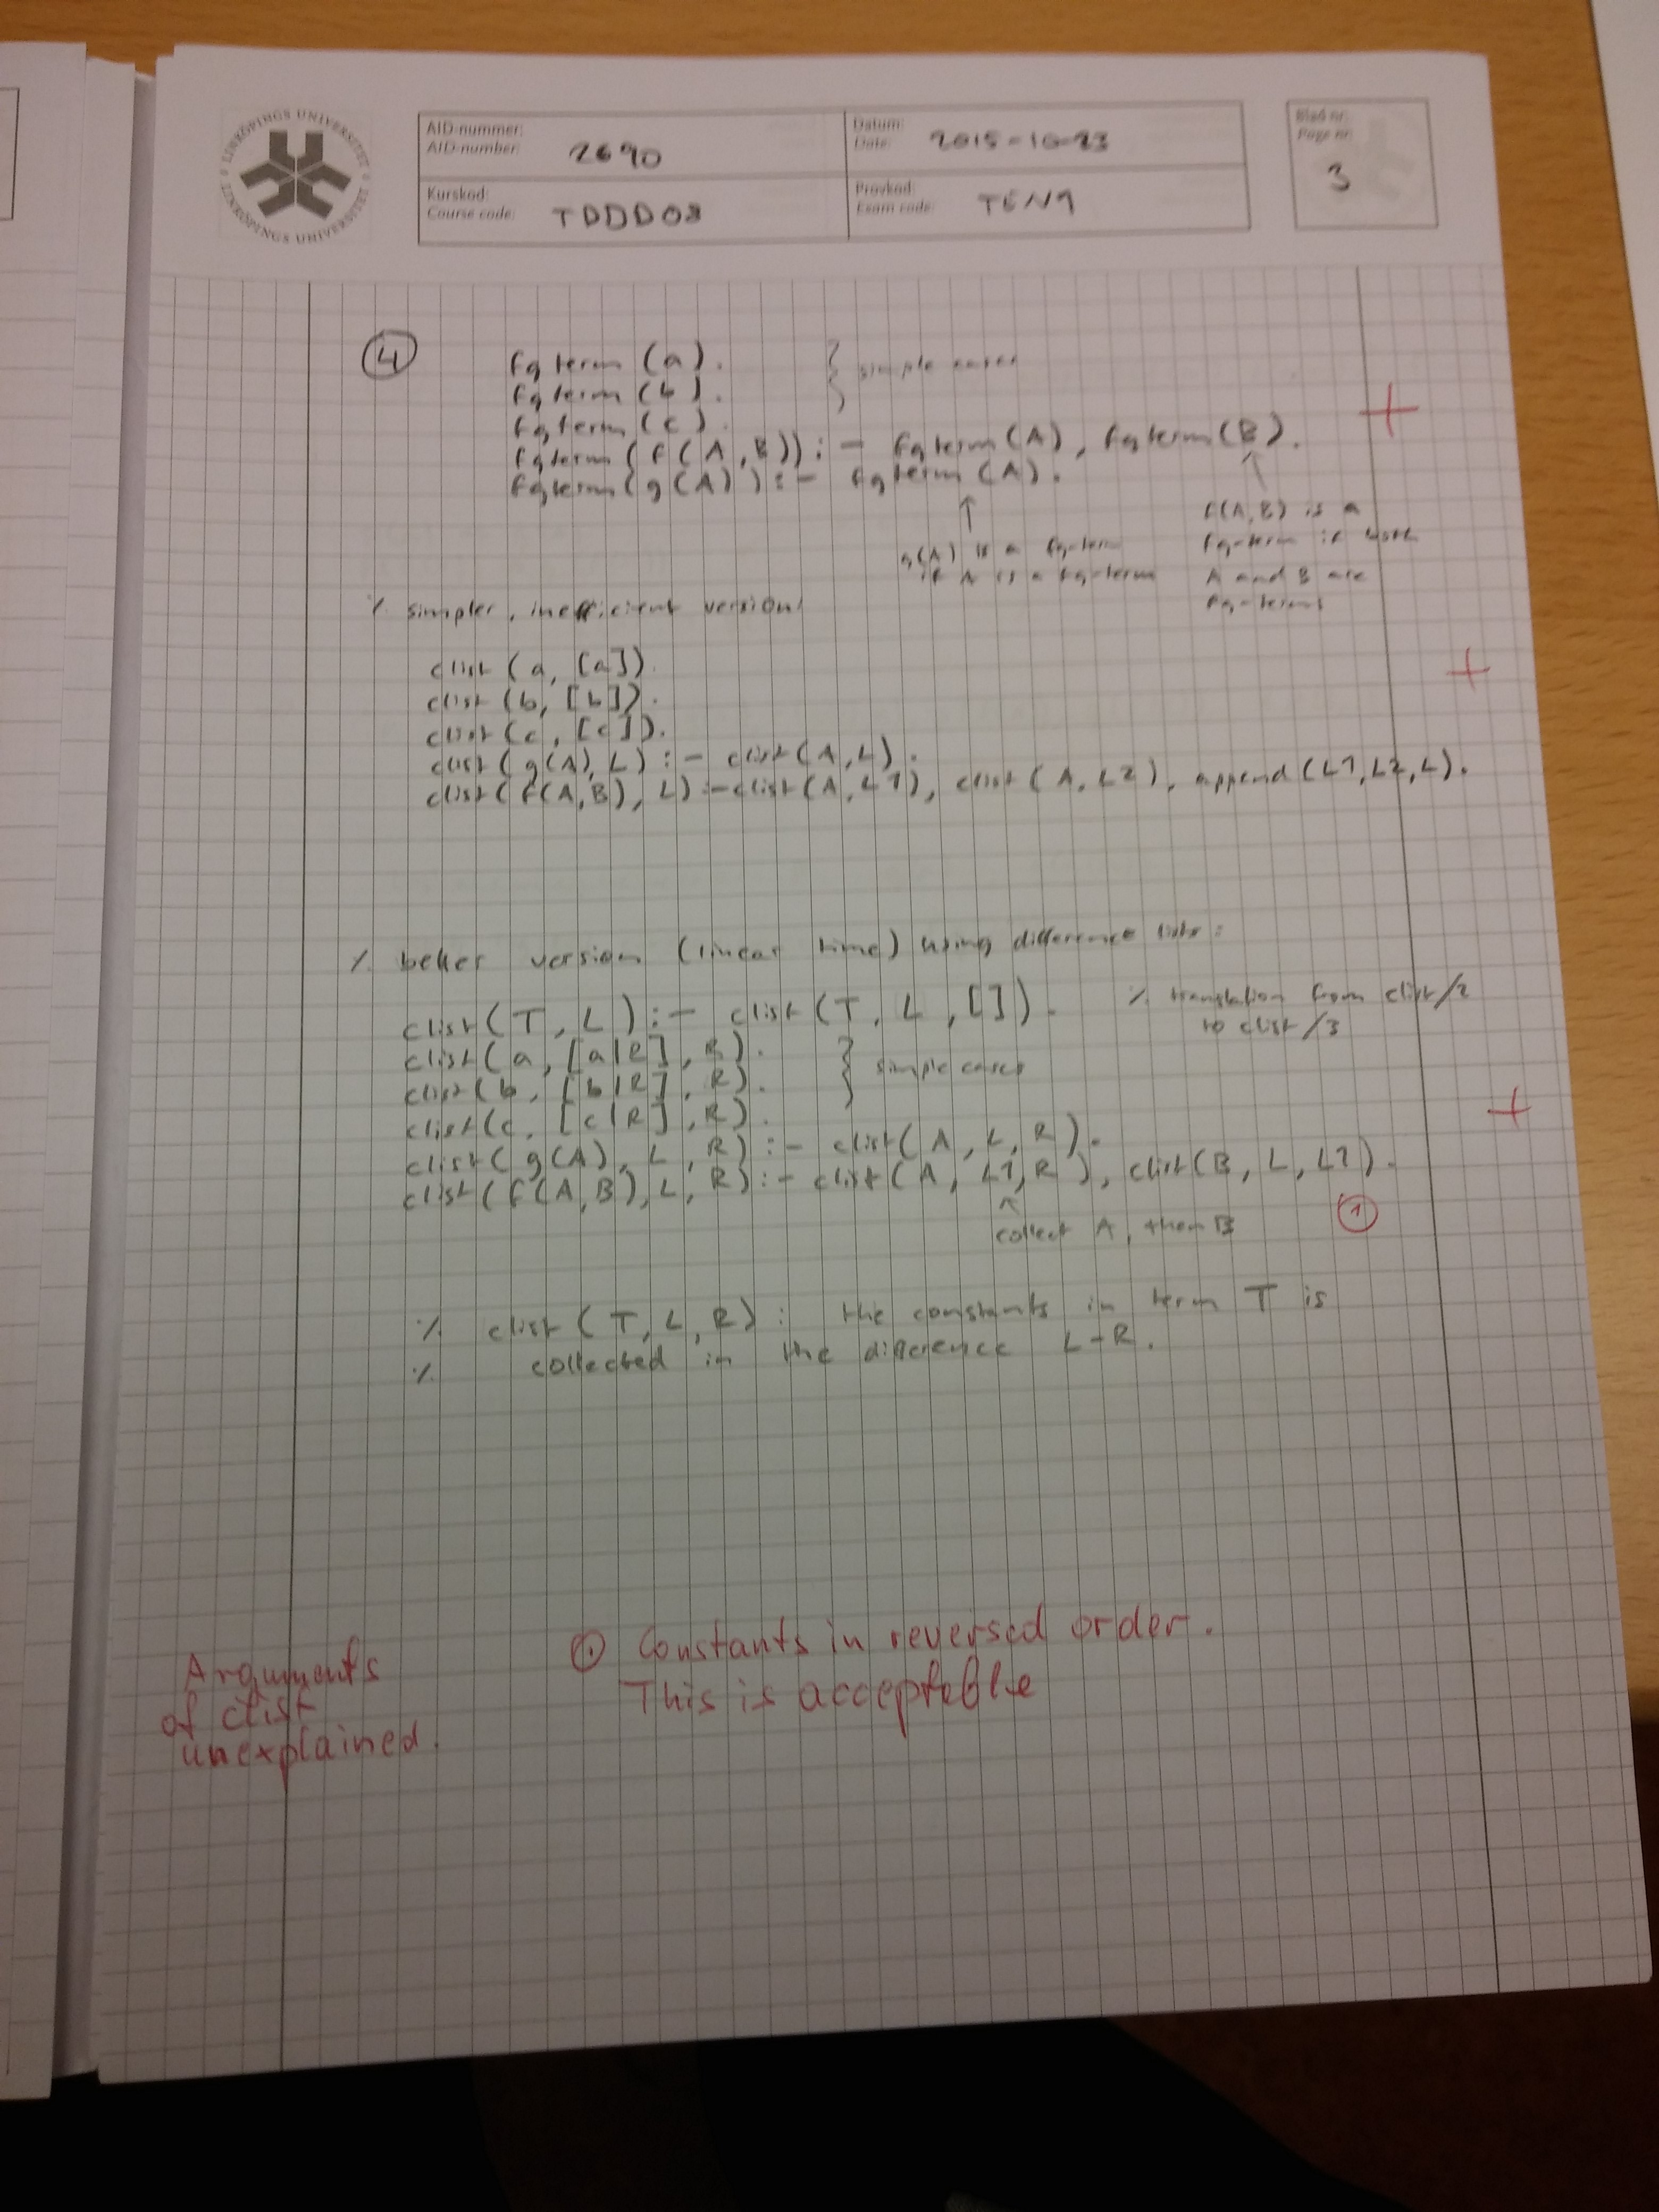 LINKÖPINGS UNIVERSITET
LINKÖPINGS UNIVERSITET
AID-nummer:
AID-number: 2690
Datum:
Date: 2015-10-23
Blad nr:
Page nr:
3
Kurskod:
Course code: TDDD08
Provkod:
Exam code: TEN1
4
fgterm(a).
fgterm(b).
fgterm(c).
} simple cases
fgterm(f(A,B)):- fgterm(A), fgterm(B).
fgterm(g(A)):- fgterm(A).
g(A) is a fg-term
if A is a fg-term
f(A,B) is a
fg-term if both
A and B are
fg-terms
% simpler, inefficient version:
clist(a, [a]).
clist(b, [b]).
clist(c, [c]).
clist(g(A), L) :- clist(A,L).
clist(f(A,B), L) :- clist(A,L1), clist(A,L2), append(L1,L2,L).
% better version (linear time) using difference lists:
clist(T, L) :- clist(T, L, []). % translation from clist/2
to clist/3
clist(a, [a|R], R).
clist(b, [b|R], R).
clist(c, [c|R], R).
} simple cases
clist(g(A), L, R) :- clist(A, L, R).
clist(f(A,B), L, R) :- clist(A, L1, R), clist(B, L, L1).
collect A, then B
1
% clist(T, L, R): the constants in term T is
% collected in the difference L-R.
1 Constants in reversed order.
This is acceptable
Arguments
of clist
unexplained.